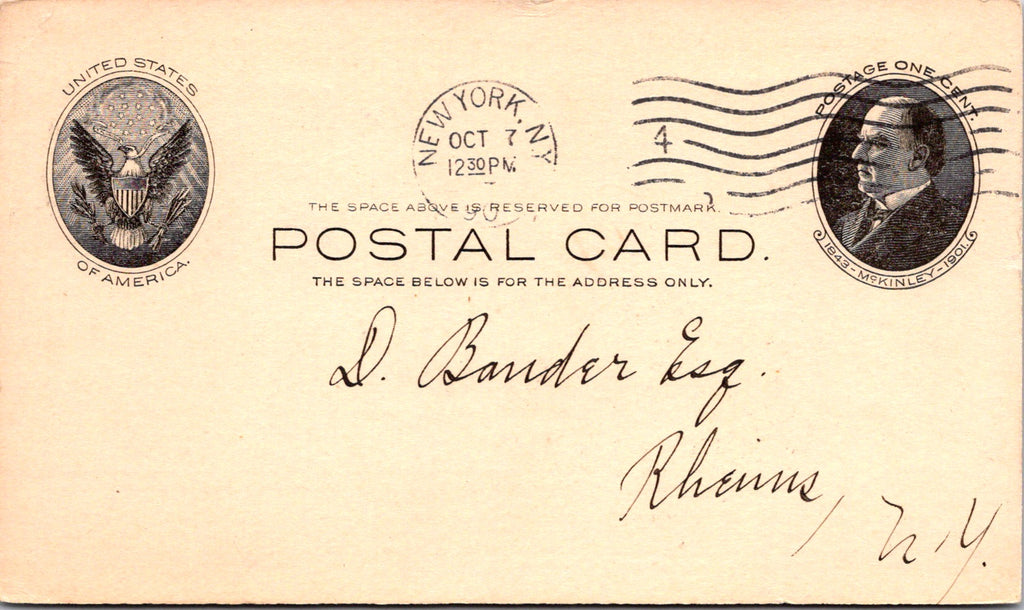 UNITED STATES
OF AMERICA.
NEW YORK, N.Y.
OCT 7
12 30 PM
190
4
POSTAGE ONE CENT.
1843-McKINLEY-1901.
THE SPACE ABOVE IS RESERVED FOR POSTMARK.
POSTAL CARD.
THE SPACE BELOW IS FOR THE ADDRESS ONLY.
D. Bander Esq.
Rheims,
N.Y.